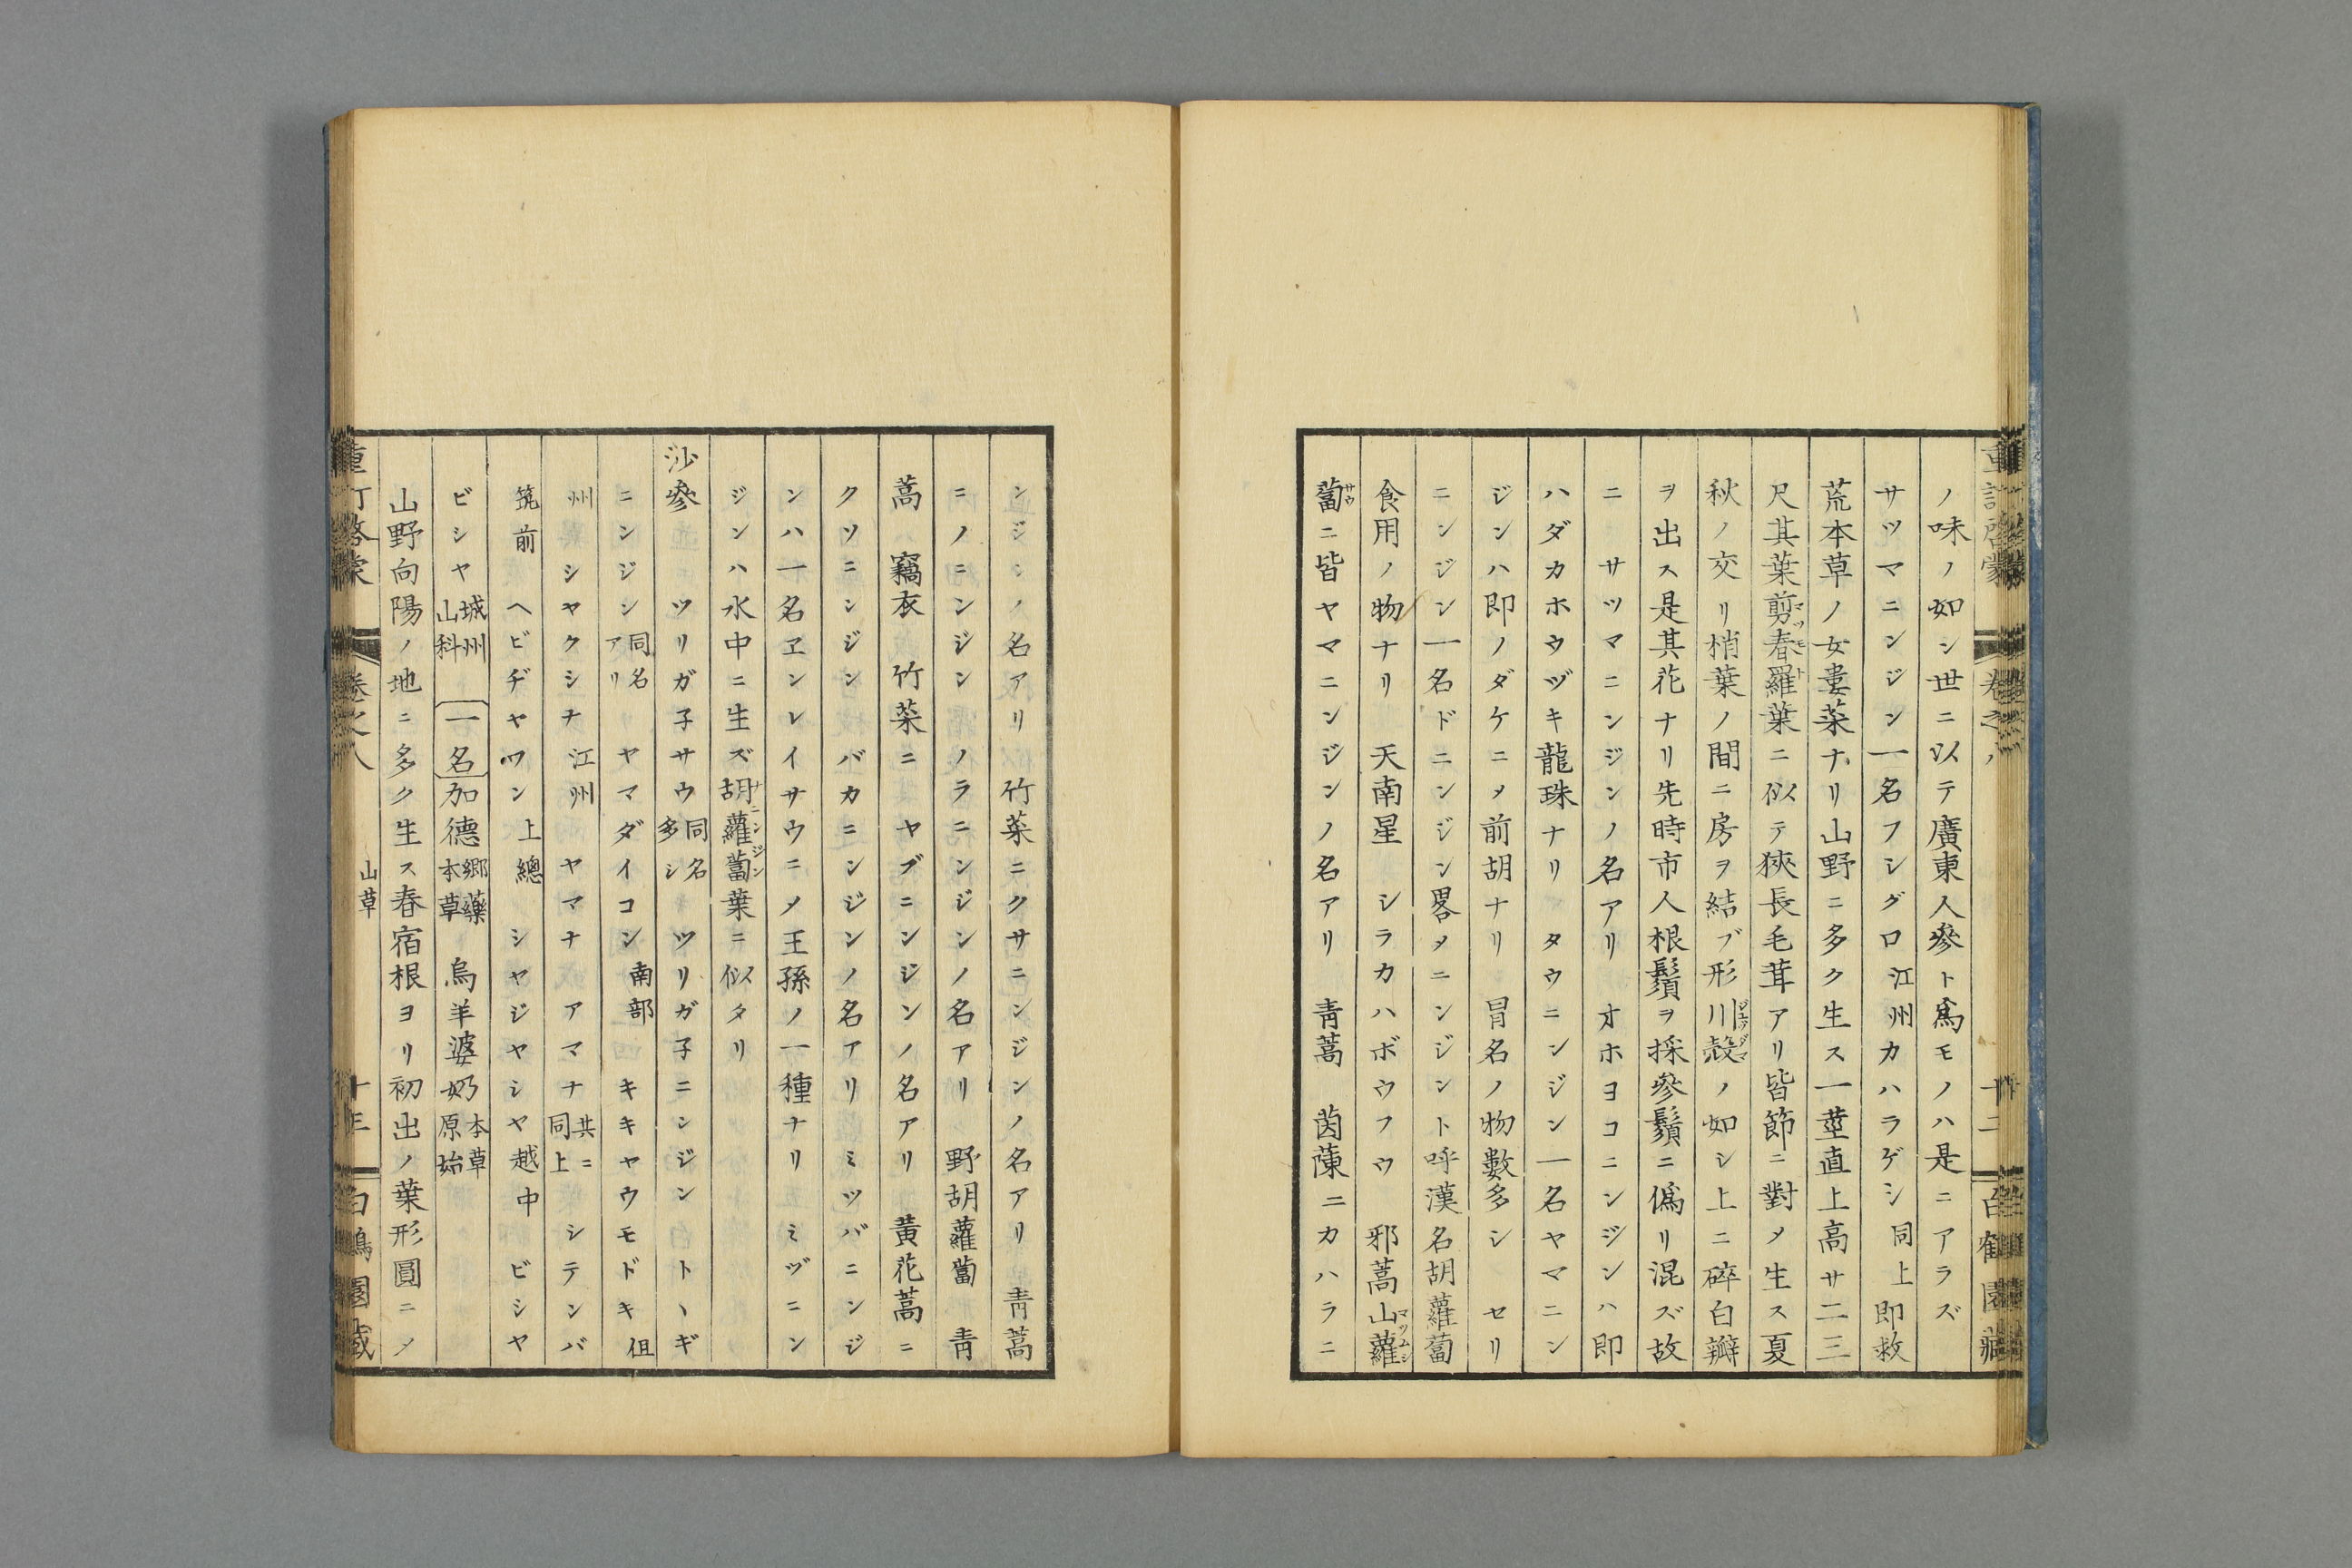 重訂啓蒙 卷之八 十二 白鶴園藏
ノ味ノ如シ世ニ以テ廣東人參ト爲モノハ是ニアラズ
サツマニンジン一名フシグロ江州カハラゲシ同上即救
荒本草ノ女婁菜ナリ山野ニ多ク生ス一莖直上高サ二三
尺其葉剪春羅マツモト葉ニ似テ狹長毛茸アリ皆節ニ對メ生ス夏
秋ノ交リ梢葉ノ間ニ房ヲ結ブ形川殻ノ如シ上ニ碎白瓣
ヲ出ス是其花ナリ先時市人根鬚ヲ採參鬚ニ僞リ混ズ故
ニ サツマニンジンノ名アリ オホヨコニンジンハ即
ハダカホウヅキ龍珠ナリ タウニンジン一名ヤマニン
ジンハ即ノダケニメ前胡ナリ 冐名ノ物數多シ セリ
ニンジン一名ドニンジン畧メニンジント呼漢名胡蘿蔔
食用ノ物ナリ 天南星 シラカハボウフウ 邪蒿山蘿マツムシ
蔔サウニ皆ヤマニンジンノ名アリ 青蒿 茵蔯ニカハラニ
ンジンノ名アリ 竹葉ニクサニンジンノ名アリ 青蒿
ニノニンジン ノラニンジンノ名アリ 野胡蘿蔔 青
蒿 竊衣 竹葉ニ ヤブニンジンノ名アリ 黃花蒿ニ
クソニンジン バカニンジンノ名アリ ミツバニンジ
ンハ一名ヱンレイサウニメ王孫ノ一種ナリ ミヅニン
ジンハ水中ニ生ズ胡蘿蔔ナニンジン葉ニ似タリ
沙參 ツリガ子サウ同名多シ ツリガ子ニンジン トヽギ
ニンジン同名アリ ヤマダイコン南部 キキヤウモドキ但
州 シヤクシナ江州 ヤマナ アマナ共ニ同上 シテンバ
筑前 ヘビヂヤワン上總 シヤジヤシヤ越中 ビシヤ
ビシヤ城州山科 一名加德郷藥本草 烏羊婆奶本草原始
山野向陽ノ地ニ多ク生ス春宿根ヨリ初出ノ葉形圓ニメ
重訂啓蒙 卷之八 山草 十三 白鶴園藏